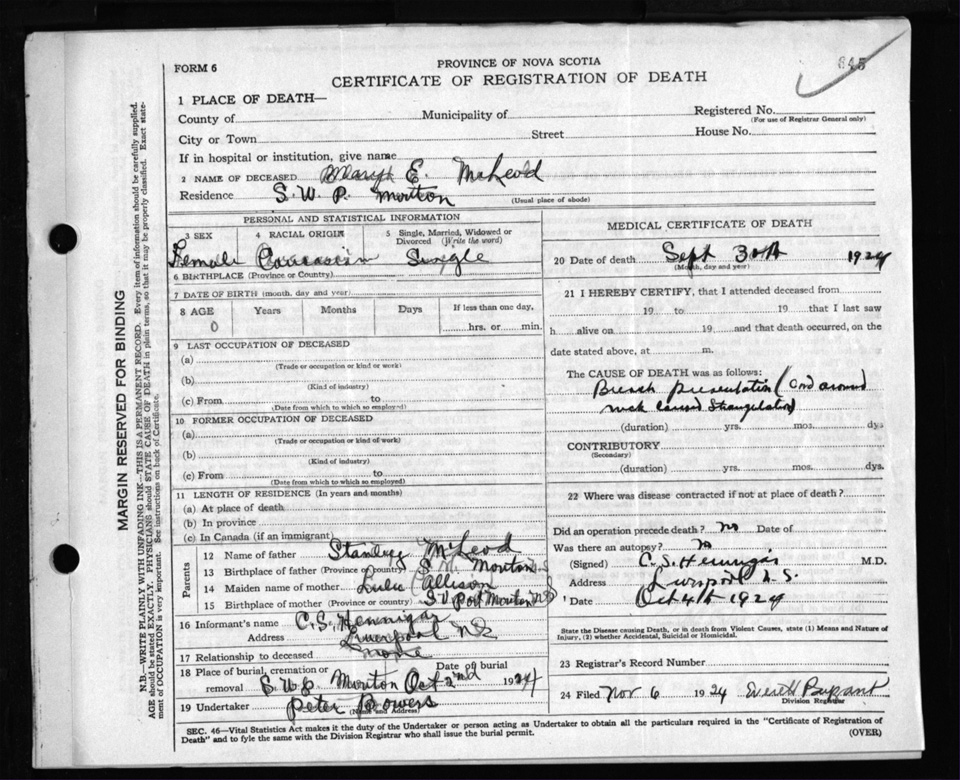 645
FORM 6
PROVINCE OF NOVA SCOTIA
CERTIFICATE OF REGISTRATION OF DEATH
1 PLACE OF DEATH—
County of Municipality of Registered No.
(For use of Registrar General only)
City or Town Street House No.
If in hospital or institution, give name
2 NAME OF DECEASED Mary E. McLeod
Residence S. W. P. Mouton
(Usual place of abode)
PERSONAL AND STATISTICAL INFORMATION
3 SEX 4 RACIAL ORIGIN 5 Single, Married, Widowed or Divorced (Write the word)
Female Caucasian Single
6 BIRTHPLACE (Province or Country)
7 DATE OF BIRTH (month, day and year)
8 AGE Years Months Days If less than one day,
0 hrs. or min.
9 LAST OCCUPATION OF DECEASED
(a)
(Trade or occupation or kind of work)
(b)
(Kind of industry)
(c) From to
(Date from which to which so employed)
10 FORMER OCCUPATION OF DECEASED
(a)
(Trade or occupation or kind of work)
(b)
(Kind of industry)
(c) From to
(Date from which to which so employed)
11 LENGTH OF RESIDENCE (In years and months)
(a) At place of death
(b) In province
(c) In Canada (if an immigrant)
Parents
12 Name of father Stanley McLeod
13 Birthplace of father (Province or country) S. M. Mouton N.S
14 Maiden name of mother Lulu Allison
15 Birthplace of mother (Province or country) Port Mouton N S
16 Informant's name C. S. Hennigar
Address Liverpool N S
17 Relationship to deceased None
18 Place of burial, cremation or removal Date of burial
S. W. P. Mouton Oct 2nd 1924
19 Undertaker Peter Bowers
(Name and Address)
MEDICAL CERTIFICATE OF DEATH
20 Date of death Sept 30th 1924
(Month, day and year)
21 I HEREBY CERTIFY, that I attended deceased from
19 to 19 that I last saw
h alive on 19 and that death occurred, on the
date stated above, at m.
The CAUSE OF DEATH was as follows:
Breech presentation (Cord around
neck caused Strangulation)
(duration) yrs. mos. dys
CONTRIBUTORY
(Secondary)
(duration) yrs. mos. dys.
22 Where was disease contracted if not at place of death?
Did an operation precede death? no Date of
Was there an autopsy? no
(Signed) C. S. Hennigar M.D.
Address Liverpool N. S.
Date Oct 4th 1924
State the Disease causing Death, or in death from Violent Causes, state (1) Means and Nature of Injury, (2) whether Accidental, Suicidal or Homicidal.
23 Registrar's Record Number
24 Filed Nov 6 1924 Everett
Division Registrar
SEC. 46—Vital Statistics Act makes it the duty of the Undertaker or person acting as Undertaker to obtain all the particulars required in the "Certificate of Registration of
Death" and to fyle the same with the Division Registrar who shall issue the burial permit. (OVER)
MARGIN RESERVED FOR BINDING
N.B.—WRITE PLAINLY WITH UNFADING INK—THIS IS A PERMANENT RECORD. Every item of information should be carefully supplied.
AGE should be stated EXACTLY. PHYSICIANS should STATE CAUSE OF DEATH in plain terms, so that it may be properly classified. Exact state-
ment of OCCUPATION is very important. See instructions on back of Certificate.